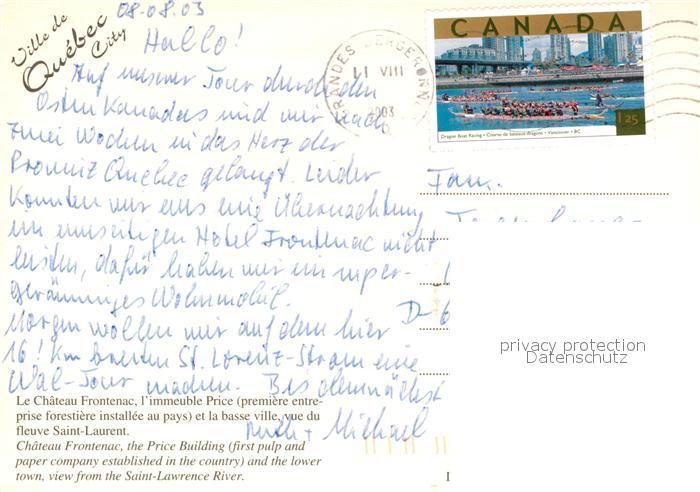 08-08.03
Ville de
Québec
City
Hallo!
Auf unserer Tour durch den
Osten Kanadas sind wir nach
zwei Wochen in das Herz der
Provinz Quebec gelangt. Leider
konnten wir uns eine Übernachtung
im einseitigen Hotel Frontenac nicht
leisten, dafür haben wir ein super-
geräumiges Wohnmobil.
Morgen wollen wir auf dem hier
16! Km breiten St. Lorenz-Strom eine
Wal-Tour machen. Bis demnächst
Ruth + Michael
Le Château Frontenac, l'immeuble Price (première entre-
prise forestière installée au pays) et la basse ville, vue du
fleuve Saint-Laurent.
Château Frontenac, the Price Building (first pulp and
paper company established in the country) and the lower
town, view from the Saint-Lawrence River.
11 VIII
2003
CANADA
125
Dragon Boat Racing • Course de bateaux-dragons • Vancouver • BC
Fam.
D-6
privacy protection
Datenschutz